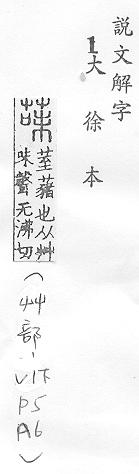 說文解字
1大徐本
菋 荎藸也从艸
味聲无沸切
(艸部、V1下
P5
A6)